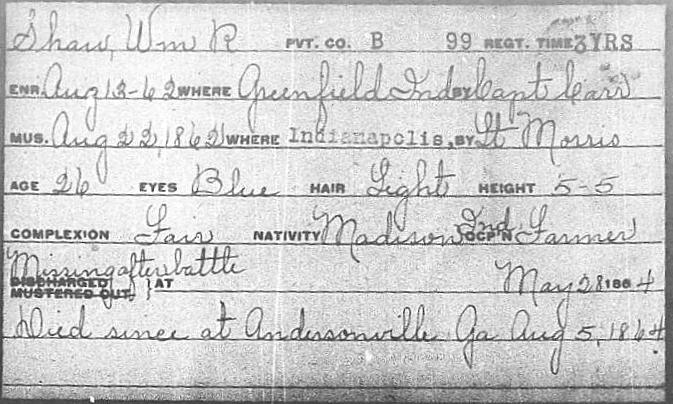 Shaw, Wm R PVT. CO. B 99 REGT. TIME 3 YRS
ENR. Aug 13-62 WHERE Greenfield Ind BY Capt Carr
MUS. Aug 22, 1862 WHERE Indianapolis, BY Lt Morris
AGE 26 EYES Blue HAIR Light HEIGHT 5-5
COMPLEXION Fair NATIVITY Madison Ind OCP'N Farmer
Missing after battle
DISCHARGED
MUSTERED OUT. } AT May 28 1864
Died since at Andersonville Ga Aug 5, 1864